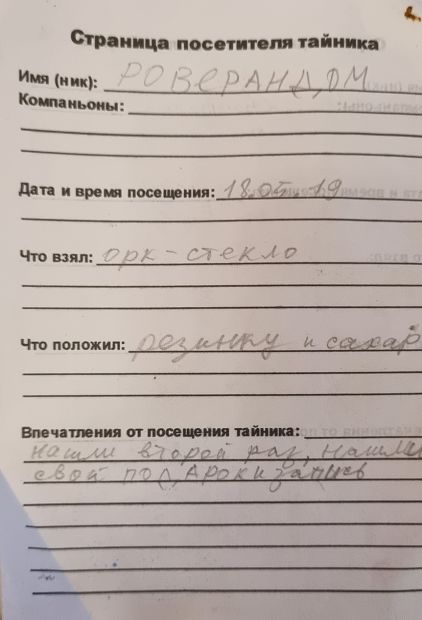 Страница посетителя тайника
Имя (ник): РОВЕРАНДОМ
Компаньоны:
Дата и время посещения: 18.05.19
Что взял: орк-стекло
Что положил: резинку и сахар
Впечатления от посещения тайника:
нашли второй раз, нашли
свой подарок и запись